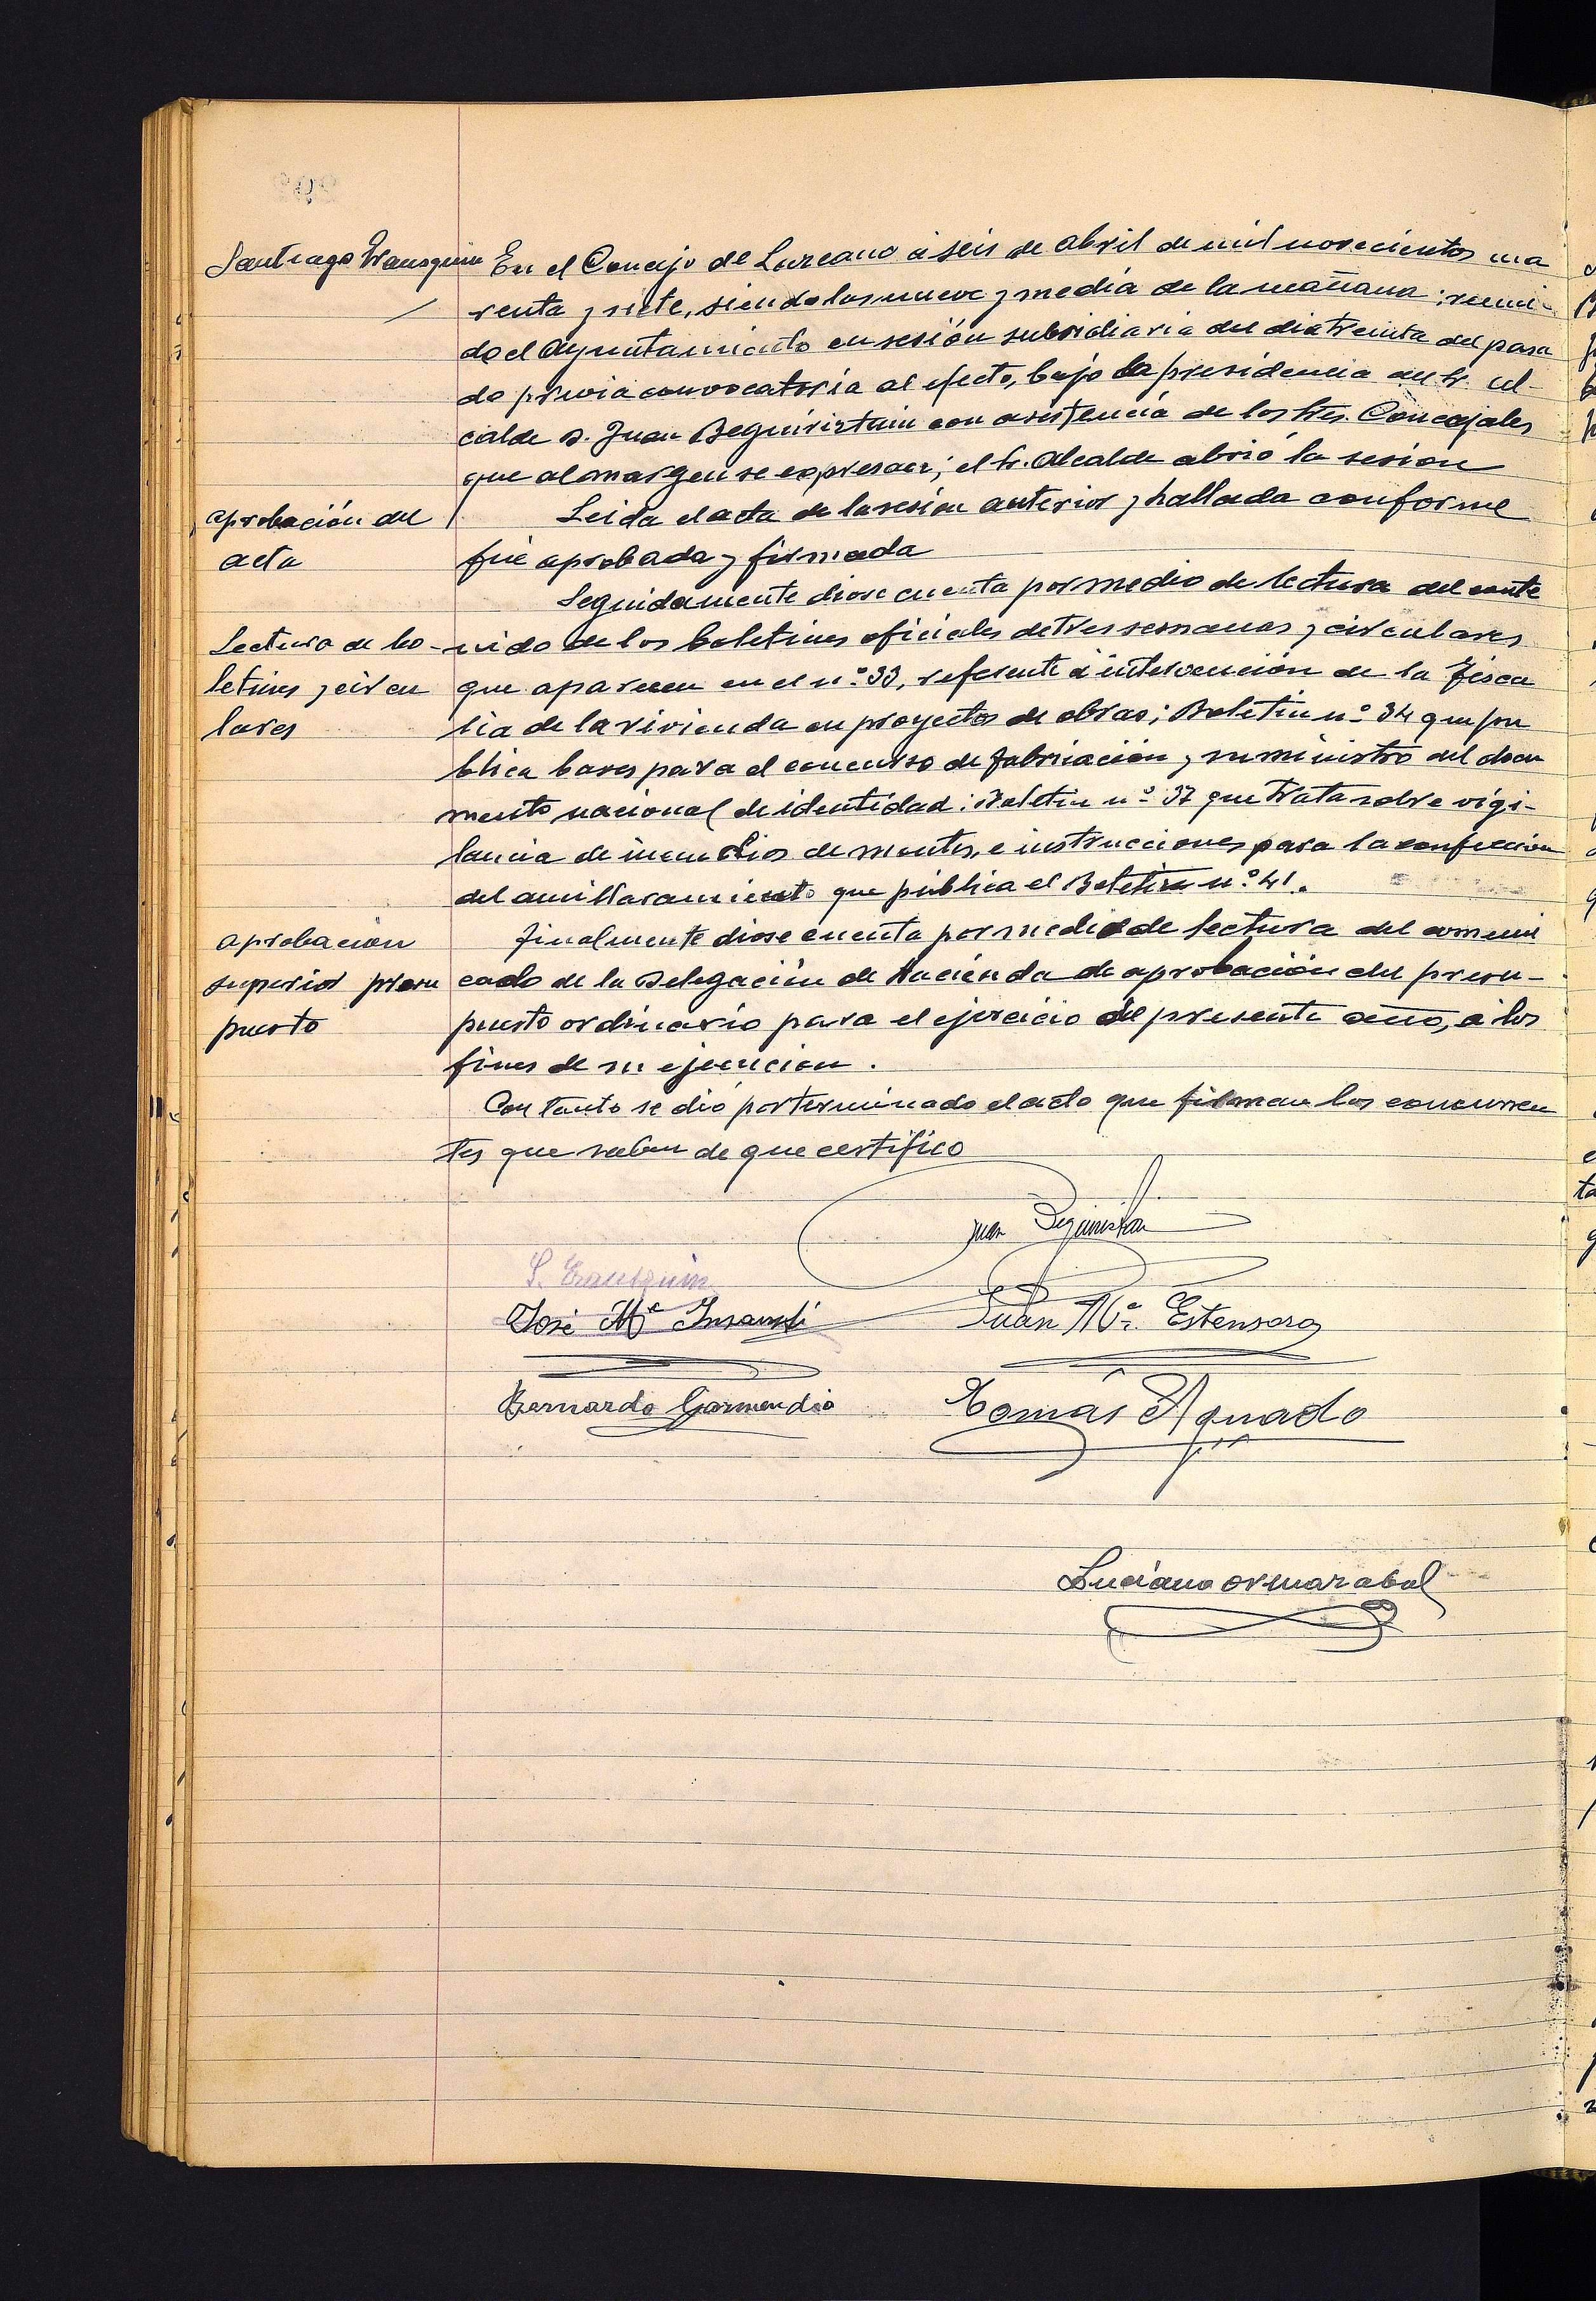 Santiago Irausquin
En el Concejo de Lazcano á seis de Abril de mil novecientos cua
renta y siete, siendo las nueve y media de la mañana; reuni-
do el Ayuntamiento en sesión subsidiaria del dia treinta del pasa
do previa convocatoria al efecto, bajo la presidencia del Sr. Al-
calde D. Juan Beguiristain con asistencia de los Sres. Concejales
que al margen se expresan; el Sr. Alcalde abrió la sesion
aprobación del
acta
Leida el acta de la sesion anterior y hallada conforme
fué aprobada y firmada
Seguidamente diose cuenta por medio de lectura del conte
Lectura de bo-
letines y circu
lares
nido de los boletines oficiales de tres semanas y circulares
que aparecen en el nº 33, referente á intervención de la Fisca
lia de la vivienda en proyectos de obras; Boletin nº 34 que pu
blica bases para el concurso de fabricación y suministro del docu
mento nacional de identidad: Boletin nº 37 que trata sobre vigi-
lancia de incendios de montes, e instrucciones para la confección
del amillaramiento que pública el Boletin nº 41.
aprobacion
superior presu
puesto
Finalmente diose cuenta por medio de lectura del comuni
cado de la Delegación de Hacienda de aprobación del presu-
puesto ordinario para el ejercicio del presente año, á los
fines de su ejecucion.
Con tanto se dió por terminado el acto que firman los concurren
tes que saben de que certifico
Juan Beguiristain
S. Irausquin
José Mª Insausti
Juan Mª. Estensoro
Bernardo Garmendia
Tomás Aguado
Luciano Ormazabal